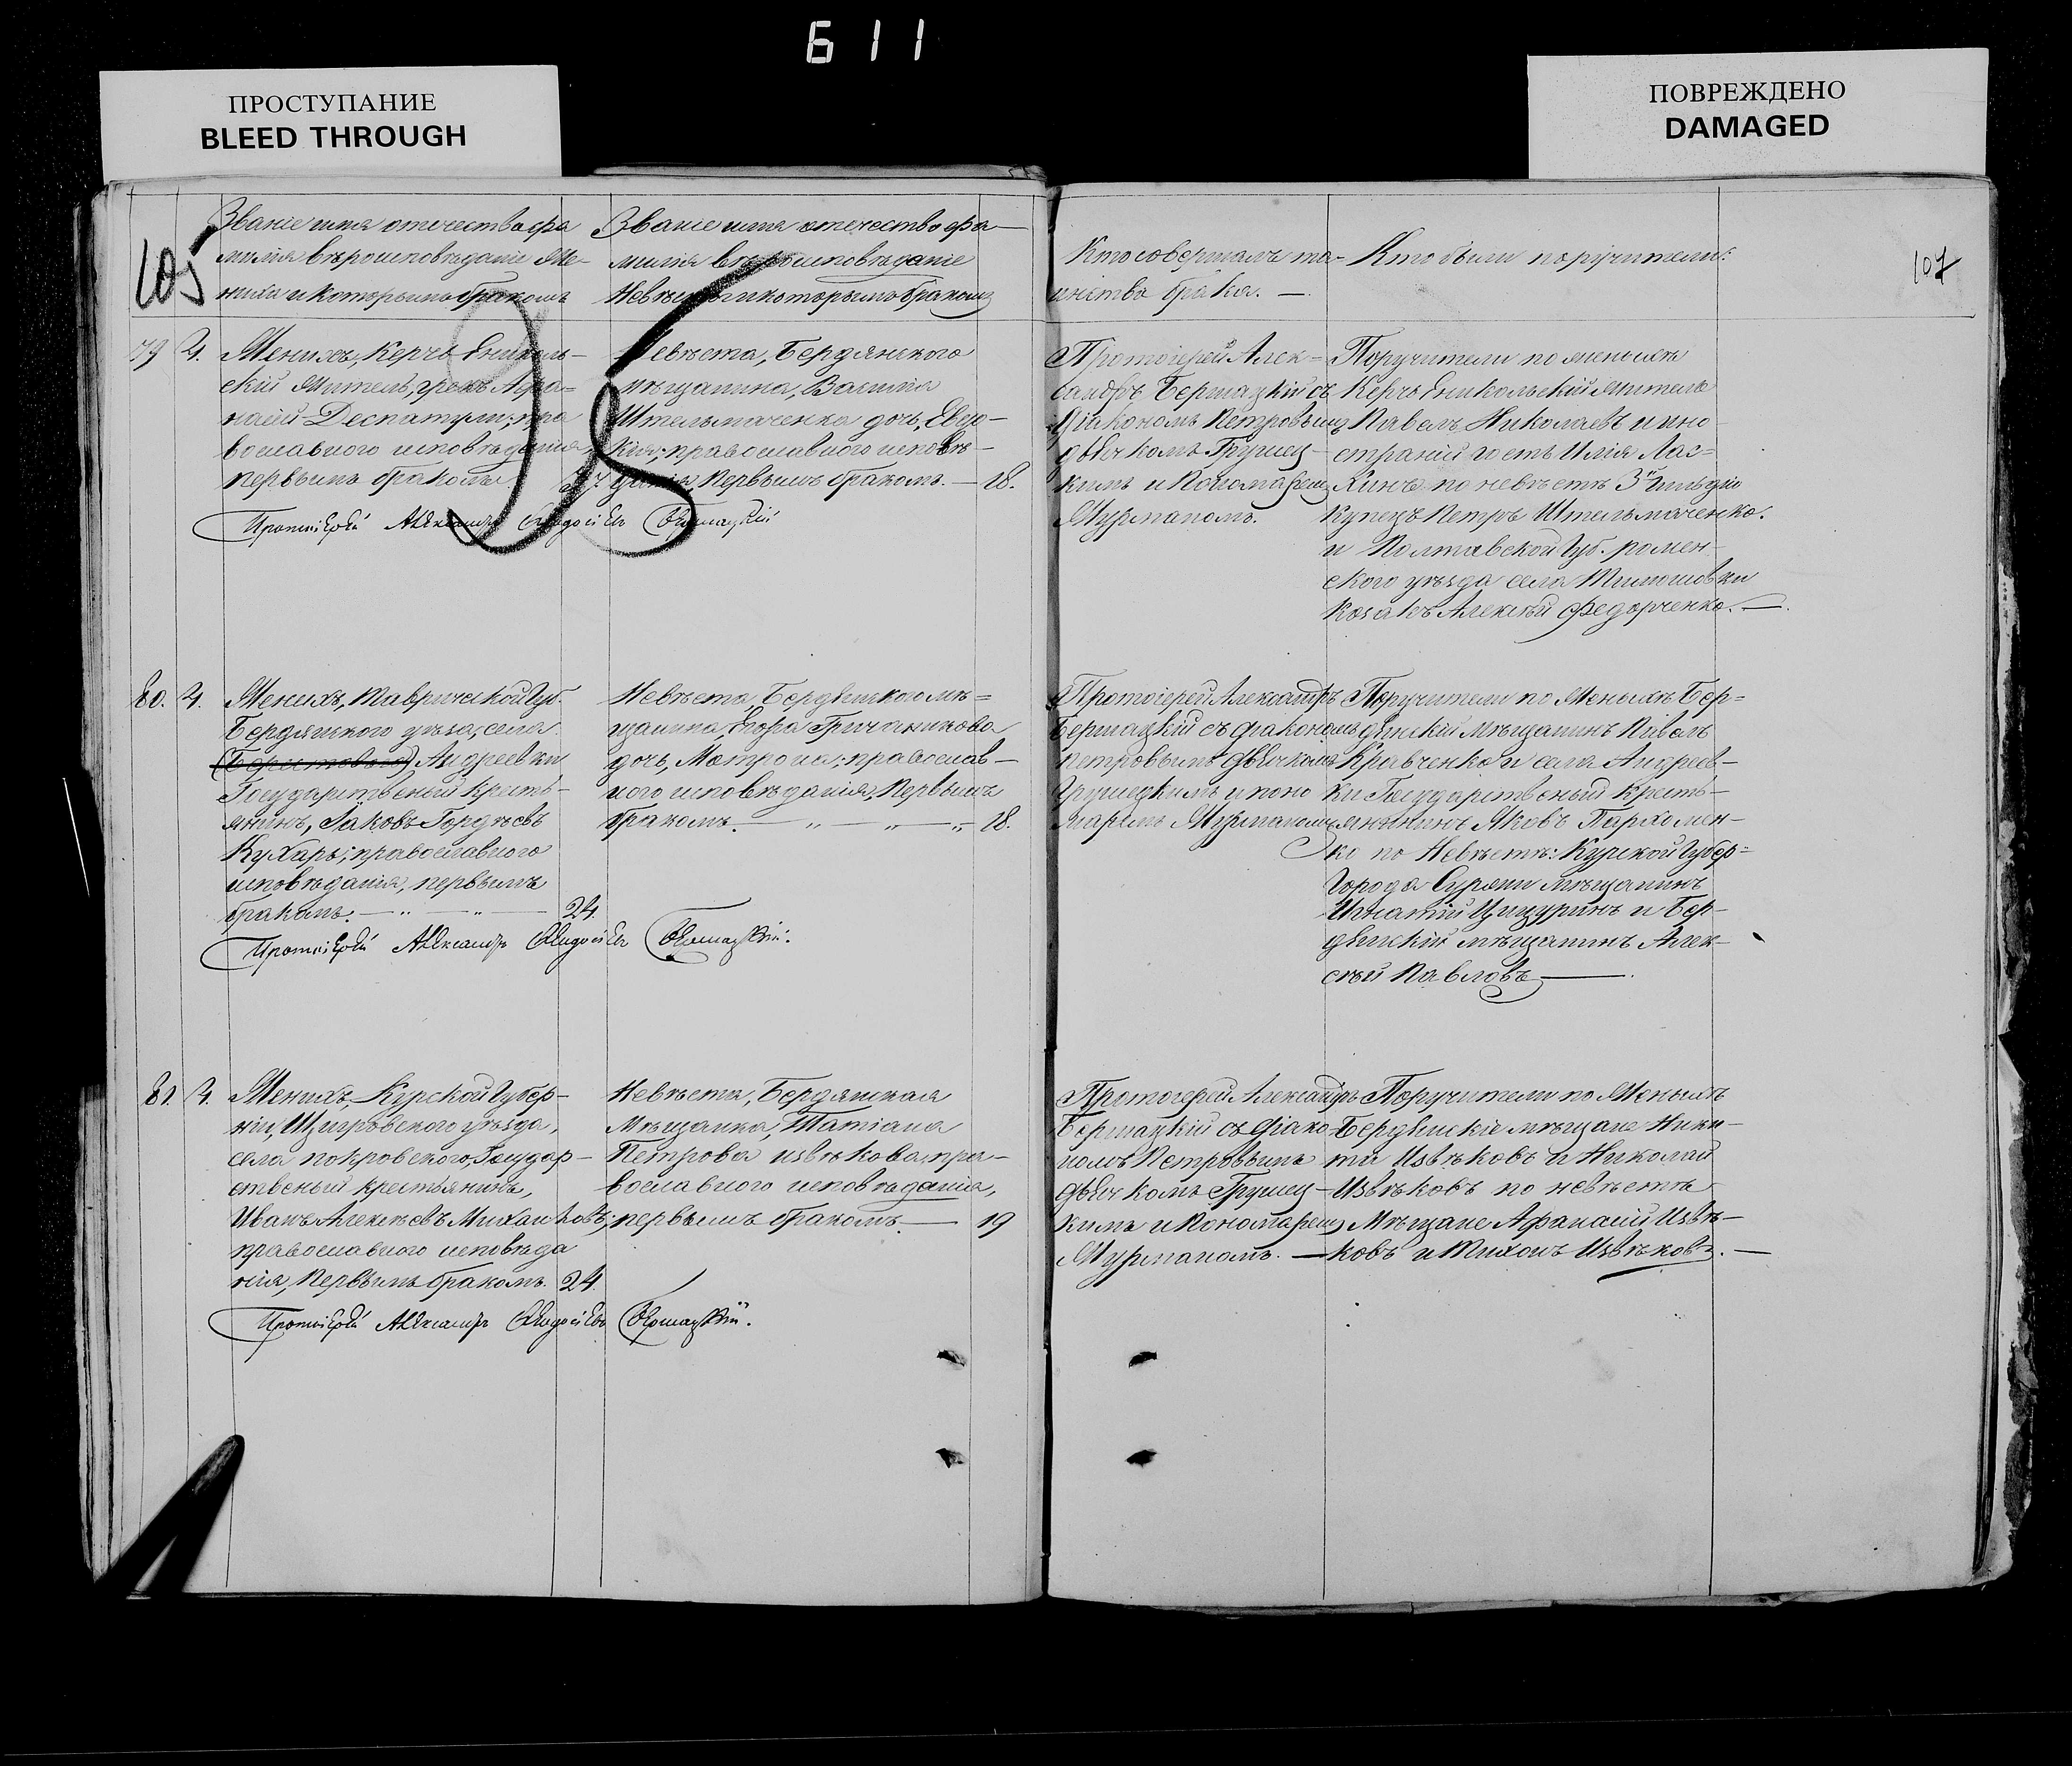 611
ПРОСТУПАНИЕ
BLEED THROUGH
ПОВРЕЖДЕНО
DAMAGED
105
Званіе имя отечества фа
милія вѣроисповѣданіе Же-
ниха и которымъ бракомъ
Званіе имя отечество фа-
милія вѣроисповѣданіе
Невѣсты и которымъ бракомъ
Кто совершалъ та-
инство брака. —
Кто были поручители:
107
79 4.
Женихъ, Керчь Ениколь-
скій житель, грекъ Афа-
насій Деспатули; пра
вославного исповѣданія,
первымъ бракомъ 27.
Невѣста, Бердянского
мѣщанина, Василія
Штельмаченка дочь, Евдо-
кія; православного исповѣ-
данія, первымъ бракомъ. — 18.
Протоіерей Александръ Ѳеодосіевъ Бершацкій
Протоіерей Алек-
сандръ Бершацкій съ
Діакономъ Петровымъ
дьячкомъ Грушец-
кимъ и Пономаремъ
Мурманомъ.
Поручители по женихѣ
Керчь Еникольскій житель
Павелъ Николаевъ и ино
страній гость Илія Лас-
кинъ по невѣстѣ 3й гильдіи
купецъ Петръ Штельмаченко.
и Полтавской Губ. ромен-
ского уѣзда села Тимошовки
козакъ Алексѣй Федорченко. —
80. 4.
Женихъ, Таврической Губ.
Бердянского уѣзда, села
Андреевки
Государственый кресть-
янинъ, Іаковъ Гордѣевъ
Кухарь; православного
исповѣданія, первымъ
бракомъ. — „ — „ — 24.
Невѣста, Бердянского мѣ-
щанина, Егора Гричаникова
дочь, Матрона; православ-
ного исповѣданія, первымъ
бракомъ. — „ — „ — „ 18.
Протоіерей Александръ Ѳеодосіевъ Бершацкій.
Протоіерей Александръ
Бершацкій съ діакономъ
Петровымъ дьячкомъ
Грушецкимъ и поно
маремъ Мурманомъ
Поручители по Женихѣ Бер-
дянскій мѣщанинъ Павелъ
Кравченко и села Андреев-
ки Государственый кресть-
янинъ Яковъ Пархомен-
ко по Невѣстѣ: Курской Губер-
Города Суржи мѣщанинъ
Игнатій Цицуринъ и Бер-
дянскій мѣщанинъ Алек-
сѣй Павловъ —
81. 4.
Женихъ, Курской Губер-
ніи, Щигровского уѣзда,
села покровского, Государ-
ственый крестьянинъ,
Иванъ Алексѣевъ Михайловъ;
православного исповѣда
нія, первымъ бракомъ. 24.
Невѣста, Бердянская
Мѣщанка, Татіана
Петрова Извѣкова, пра-
вославного исповѣданія,
первымъ бракомъ — 19
Протоіерей Александръ Ѳеодосіевъ Бершацкій.
Протоіерей Александръ
Бершацкій съ діако
номъ Петровымъ
дьячкомъ Грушец-
кимъ и Пономаремъ
Мурманомъ. —
Поручители по Женихѣ
Бердянскіе мѣщане Ники-
та Извѣковъ и Николай
Извѣковъ по невѣстѣ
Мѣщане Афанасій Извѣ-
ковъ и Тихонъ Извѣковъ. —